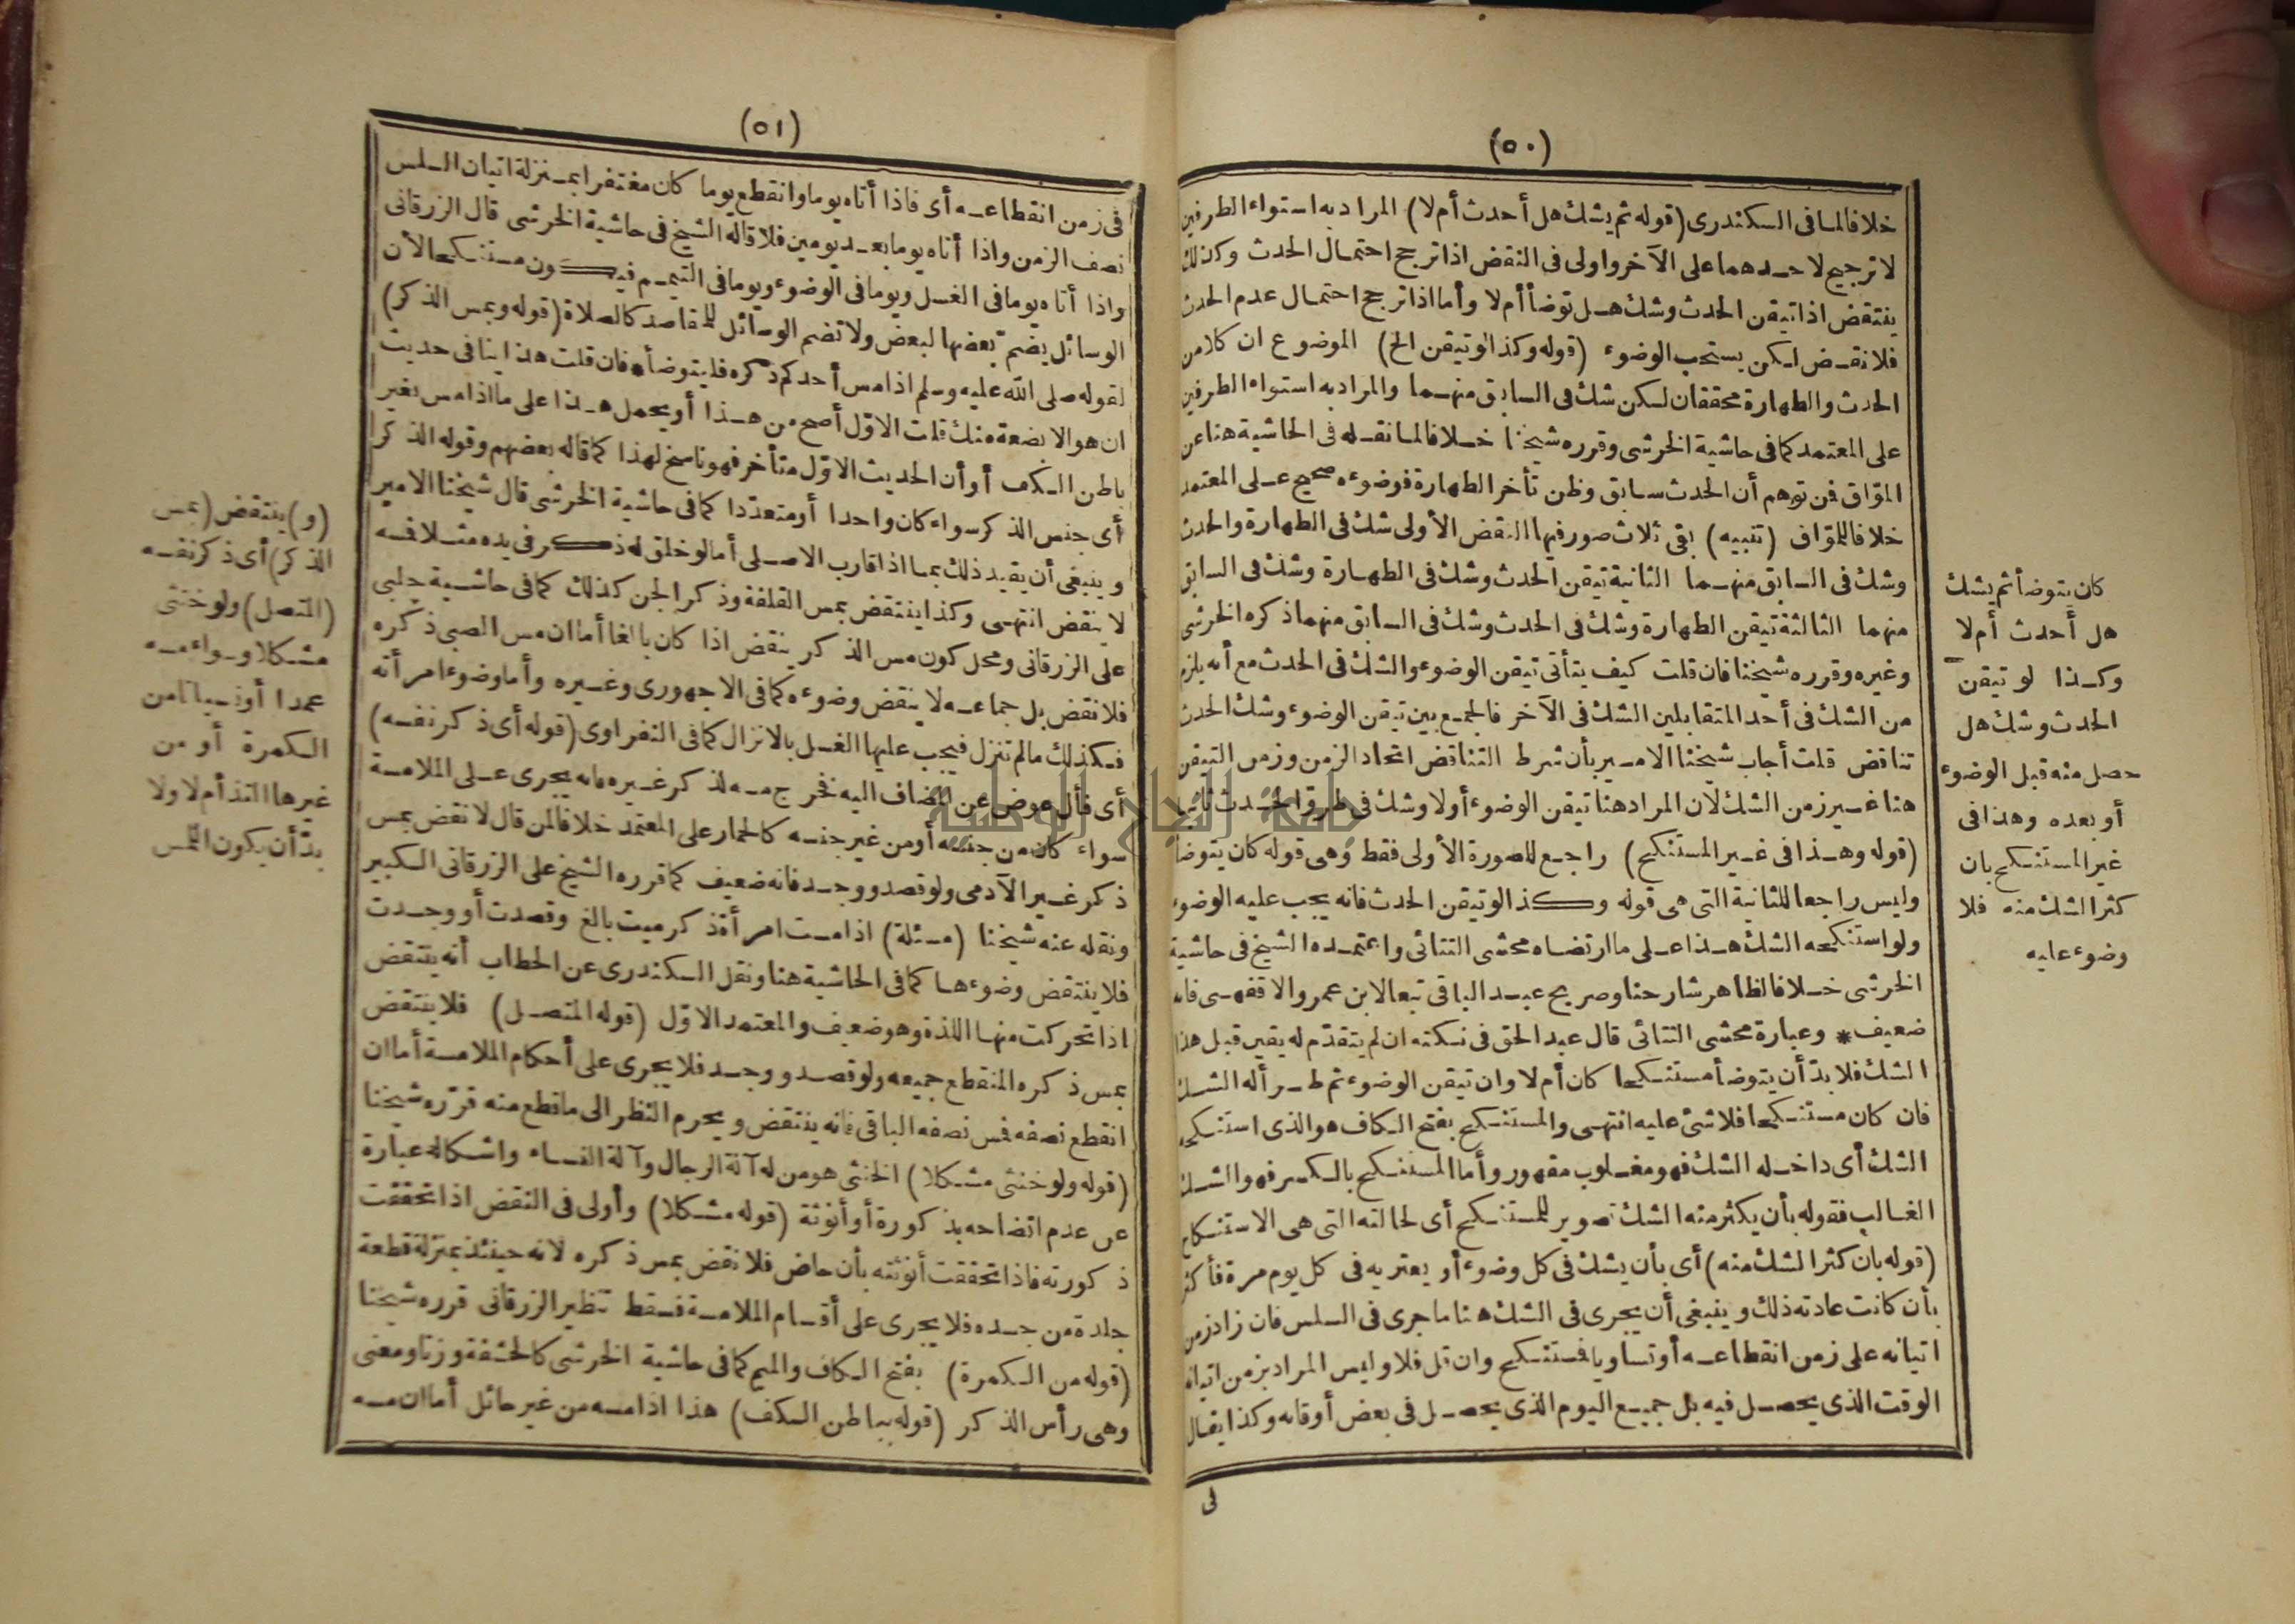 (٥٠)
خلافا لما فى السكندرى (قوله ثم يشك هل أحدث أم لا) المراد به استواء الطرفين
لا ترجيح لاحدهما على الآخر وأولى فى النقض اذا ترجح احتمال الحدث وكذلك
ينتقض اذا تيقن الحدث وشك هل توضأ أم لا وأما اذا ترجح احتمال عدم الحدث
فلا نقض لكن يستحب الوضوء (قوله وكذا لو تيقن الخ) الموضوع ان كلا من
الحدث والطهارة محققان لكن شك فى السابق منهما والمراد به استواء الطرفين
على المعتمد كما فى حاشية الخرشى وقرره شيخنا خلافا لما نقله فى الحاشية هنا عن
المواق فمن توهم أن الحدث سابق وظن تأخر الطهارة فوضوءه صحيح على المعتمد
خلافا للمواق (تنبيه) بقى ثلاث صور فيها النقض الأولى شك فى الطهارة والحدث
وشك فى السابق منهما الثانية تيقن الحدث وشك فى الطهارة وشك فى السابق
منهما الثالثة تيقن الطهارة وشك فى الحدث وشك فى السابق منهما ذكره الخرشى
وغيره وقرره شيخنا فان قلت كيف يتأتى تيقن الوضوء والشك فى الحدث مع أنه يلزم
من الشك فى أحد المتقابلين الشك فى الآخر فالجمع بين تيقن الوضوء وشك الحدث
تناقض قلت أجاب شيخنا الامير بأن شرط التناقض اتحاد الزمن وزمن التيقن
هنا غير زمن الشك لان المراد هنا تيقن الوضوء أولا وشك فى طرو الحدث ثانيا
(قوله وهذا فى غير المستنكح) راجع للصورة الأولى فقط وهى قوله كان يتوضأ
وليس راجعا للثانية التى هى قوله وكذا لو تيقن الحدث فانه يجب عليه الوضوء
ولو استنكحه الشك هذا على ما ارتضاه محشى التتائى واعتمده الشيخ فى حاشية
الخرشى خلافا لظاهر شارحنا وصريح عبد الباقى تبعا لابن عمر والاقفهسى فانه
ضعيف * وعبارة محشى التتائى قال عبد الحق فى نكته ان لم يتقدم له يقين قبل هذا
الشك فلا بد أن يتوضأ مستنكحا كان أم لا وان تيقن الوضوء ثم طرأ له الشك
فان كان مستنكحا فلا شئ عليه انتهى والمستنكح بفتح الكاف هو الذى استنكحه
الشك أى داخله الشك فهو مغلوب مقهور وأما المستنكح بالكسر فهو الشك
الغالب فقوله بأن يكثر منه الشك تصوير للمستنكح أى لحالته التى هى الاستنكاح
(قوله بان كثر الشك منه) أى بأن يشك فى كل وضوء أو يعتريه فى كل يوم مرة فأكثر
بأن كانت عادته ذلك وينبغى أن يجرى فى الشك هنا ما جرى فى السلس فان زاد زمن
اتيانه على زمن انقطاعه أو تساويا فمستنكح وان قل فلا وليس المراد بزمن اتيانه
الوقت الذى يحصل فيه بل جميع اليوم الذى يحصل فى بعض أوقاته وكذا يقال
كان يتوضأ ثم يشك
هل أحدث أم لا
وكذا لو تيقن
الحدث وشك هل
حصل منه قبل الوضوء
أو بعده وهذا فى
غير المستنكح بان
كثر الشك منه فلا
وضوء عليه
(٥١)
فى زمن انقطاعه أى فاذا أتاه يوما وانقطع يوما كان مغتفرا بمنزلة اتيان السلس
نصف الزمن واذا أتاه يوما بعد يومين فلا قاله الشيخ فى حاشية الخرشى قال الزرقانى
واذا أتاه يوما فى الغسل ويوما فى الوضوء ويوما فى التيمم فيكون مستنكحا لأن
الوسائل يضم بعضها لبعض ولا تضم الوسائل للمقاصد كالصلاة (قوله وبمس الذكر)
لقوله صلى الله عليه وسلم اذا مس أحدكم ذكره فليتوضأ * فان قلت هذا ينافى حديث
ان هو الا بضعة منك قلت الاول أصح من هذا أو يحمل هذا على ما اذا مس بغير
باطن الكف أو أن الحديث الاول متأخر فهو ناسخ لهذا كما قاله بعضهم وقوله الذكر
أى جنس الذكر سواء كان واحدا أو متعددا كما فى حاشية الخرشى قال شيخنا الامير
وينبغى أن يقيد ذلك بما اذا قارب الاصلى أما لو خلق له ذكر فى يده مثلا فمسه
لا ينقض انتهى وكذا ينتقض بمس القلفة وذكر الجن كذلك كما فى حاشية جلبى
على الزرقانى ومحل كون مس الذكر ينقض اذا كان بالغا أما ان مس الصبى ذكره
فلا نقض بل جماعه لا ينقض وضوءه كما فى الاجهورى وغيره وأما وضوء امرأته
فكذلك ما لم تنزل فيجب عليها الغسل بالانزال كما فى النفراوى (قوله أى ذكر نفسه)
أى فأل عوض عن المضاف اليه فخرج مسه لذكر غيره فانه يجرى على الملامسة
سواء كان من جنسه أو من غير جنسه كالحمار على المعتمد خلافا لمن قال لا نقض بمس
ذكر غير الآدمى ولو قصد ووجد فانه ضعيف كما قرره الشيخ على الزرقانى الكبير
ونقله عنه شيخنا (مسئلة) اذا مست امرأة ذكر ميت بالغ وقصدت أو وجدت
فلا ينتقض وضوءها كما فى الحاشية هنا ونقل السكندرى عن الحطاب أنه ينتقض
اذا تحركت منها اللذة وهو ضعيف والمعتمد الاول (قوله المتصل) فلا ينتقض
بمس ذكره المنقطع جميعه ولو قصد ووجد فلا يجرى على أحكام الملامسة أما ان
انقطع نصفه فمس نصفه الباقى فانه ينتقض ويحرم النظر الى ما قطع منه قرره شيخنا
(قوله ولو خنثى مشكلا) الخنثى هو من له آلة الرجال وآلة النساء واشكاله عبارة
عن عدم اتضاحه بذكورة أو أنوثة (قوله مشكلا) وأولى فى النقض اذا تحققت
ذكورته فاذا تحققت أنوثته بأن حاض فلا نقض بمس ذكره لانه حينئذ بمنزلة قطعة
جلدة من جسده فلا يجرى على أقسام الملامسة فسقط تنظير الزرقانى قرره شيخنا
(قوله من الكمرة) بفتح الكاف والميم كما فى حاشية الخرشى كالحشفة وزنا ومعنى
وهى رأس الذكر (قوله بباطن الكف) هذا اذا مسه من غير حائل أما ان مسه
(و) ينتقض (بمس
الذكر) أى ذكر نفسه
(المتصل) ولو خنثى
مشكلا وسواء مسه
عمدا أو نسيانا من
الكمرة أو من
غيرها التذ أم لا ولا
بد أن يكون اللمس
جامعة النجاح الوطنية